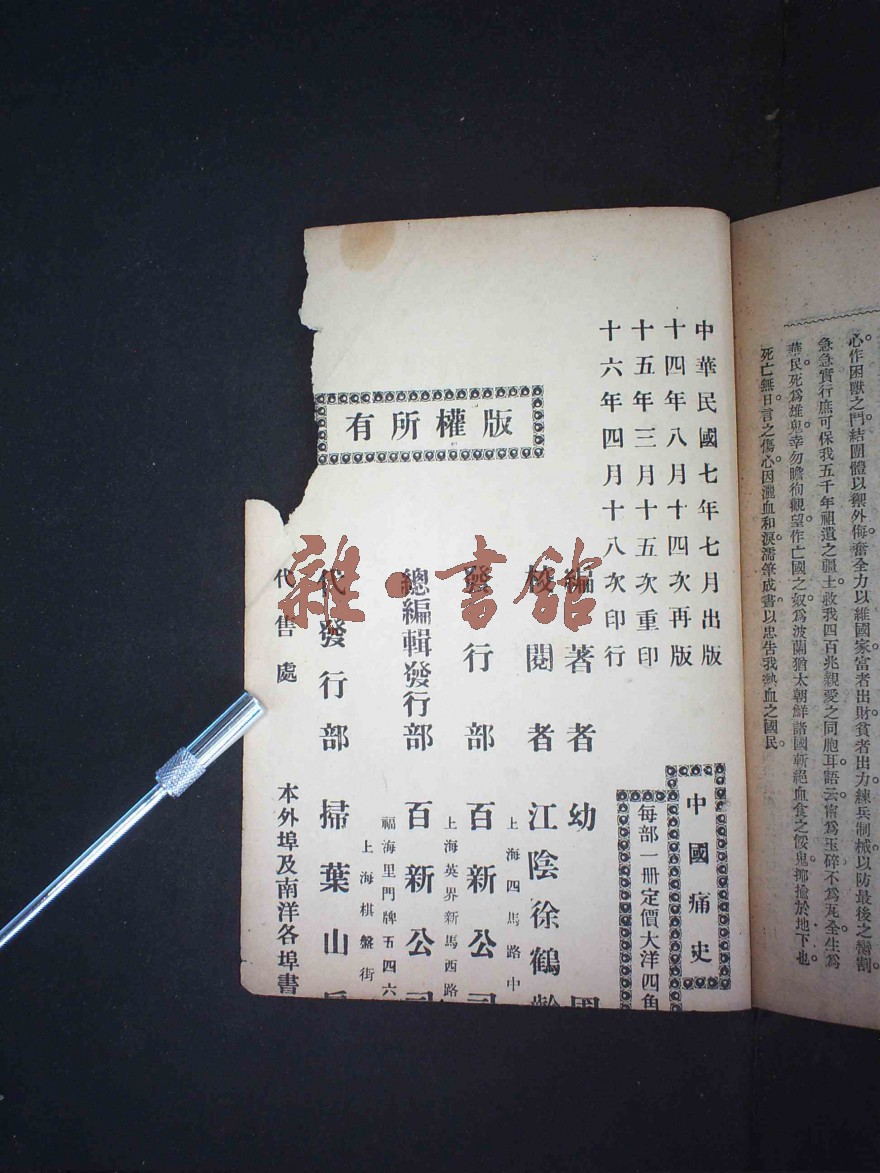 心作困獸之鬥結團體以禦外侮奮全力以維國家富者出財貧者出力練兵制械以防最後之臠割
急急實行庶可保我五千年祖遺之疆土救我四百兆親愛之同胞耳語云甯為玉碎不為瓦全生為
華民死為雄鬼幸勿瞻徇觀望作亡國之奴為波蘭猶太朝鮮諸國斬絕血食之餒鬼揶揄於地下也
死亡無日言之傷心因灑血和淚濡筆成書以忠告我熱血之國民
中華民國七年七月出版
十四年八月十四次再版
十五年三月十五次重印
十六年四月十八次印行
中國痛史
每部一冊定價大洋四角
版權所有
編著者 幼
校閱者 江陰徐鶴齡
上海四馬路中
發行部 百新公司
上海英界新馬西路
總編輯發行部 百新公司
福海里門牌五四六
上海棋盤街
代發行部 掃葉山
代售處 本外埠及南洋各埠書
雜·書館